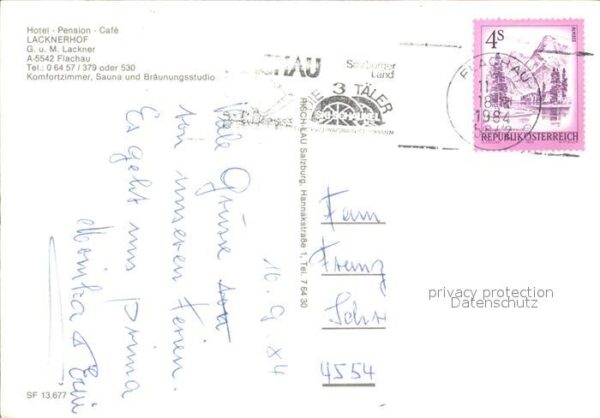 Hotel · Pension · Café
LACKNERHOF
G. u. M. Lackner
A-5542 Flachau
Tel.: 0 64 57 / 379 oder 530
Komfortzimmer, Sauna und Bräunungsstudio
CHAU
Salzburger
Land
DIE 3 TÄLER
SKI-SCHAUKEL
FLACHAU
11
18
1984
5542
4S
ALMSEE
REPUBLIK ÖSTERREICH
RISCH-LAU Salzburg, Hannakstraße 1, Tel. 7 64 30
10. 9. 84
Viele Grüße
von unseren Ferien.
Es geht uns prima
Monika + Erni
Fam
Franz
4554
privacy protection
Datenschutz
SF 13.677